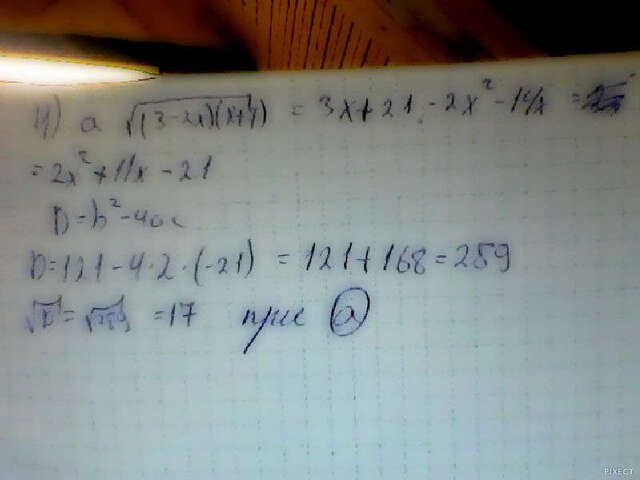 4) a √(3-2x)(x+7) = 3x+21-2x²-14x =
=2x²+11x-21
D=b²-4ac
D=121-4·2·(-21) = 121+168=289
√D=√289 =17 при a
PIXECT